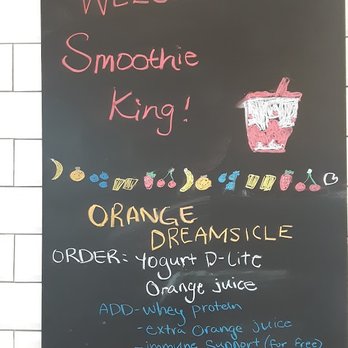 Smoothie
King!
ORANGE
DREAMSICLE
ORDER: Yogurt D-Lite
Orange juice
ADD - whey protein
- extra Orange juice
- immune Support (for free)